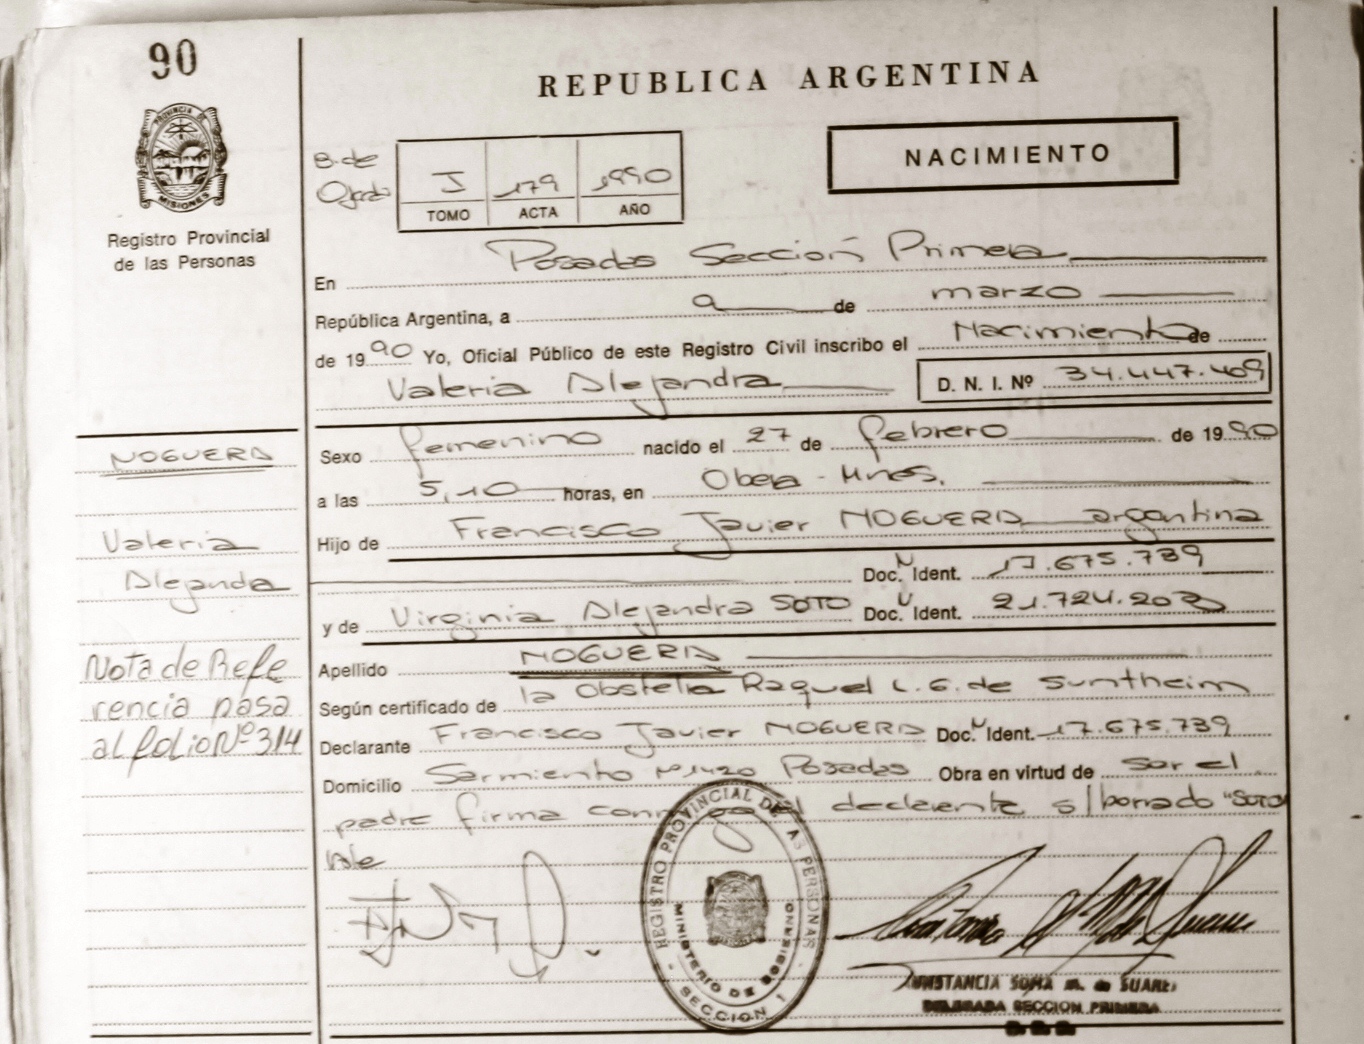 90
REPUBLICA ARGENTINA
PROVINCIA DE MISIONES
Registro Provincial
de las Personas
B. de Ojeda
I 179 1990
TOMO ACTA AÑO
NACIMIENTO
En Posadas Sección Primera
República Argentina, a 9 de marzo
de 1990 Yo, Oficial Público de este Registro Civil inscribo el Nacimiento de
Valeria Alejandra D. N. I. Nº 34.447.409
Sexo femenino nacido el 27 de febrero de 1990
a las 5,10 horas, en Obera - Mnes.
Hijo de Francisco Javier NOGUERA argentina
Doc. N Ident. 17.675.739
y de Virginia Alejandra SOTO Doc. U Ident. 21.724.203
Apellido NOGUERA
Según certificado de la Obstetra Raquel L. G. de Suntheim
Declarante Francisco Javier NOGUERA Doc. N Ident. 17.675.739
Domicilio Sarmiento Nº 1420 Posadas Obra en virtud de ser el
padre firma el declarante s/borrado "SOTO"
Vale
NOGUERA
Valeria
Alejanda
Nota de Refe
rencia pasa
al folio Nº 314
REGISTRO PROVINCIAL DE LAS PERSONAS
MINISTERIO DE GOBIERNO
SECCION 1
CONSTANCIA SOFIA M. de SUAREZ
DELEGADA SECCION PRIMERA